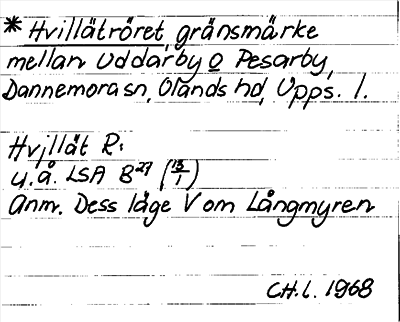 * Hvillätröret, gränsmärke
mellan Uddarby o Pesarby,
Dannemora sn, Olands hd, Upps. l.
Hvillät R:
u.å. LSA B27 (13/1)
Anm. Dess läge V om Långmyren
CH.L. 1968